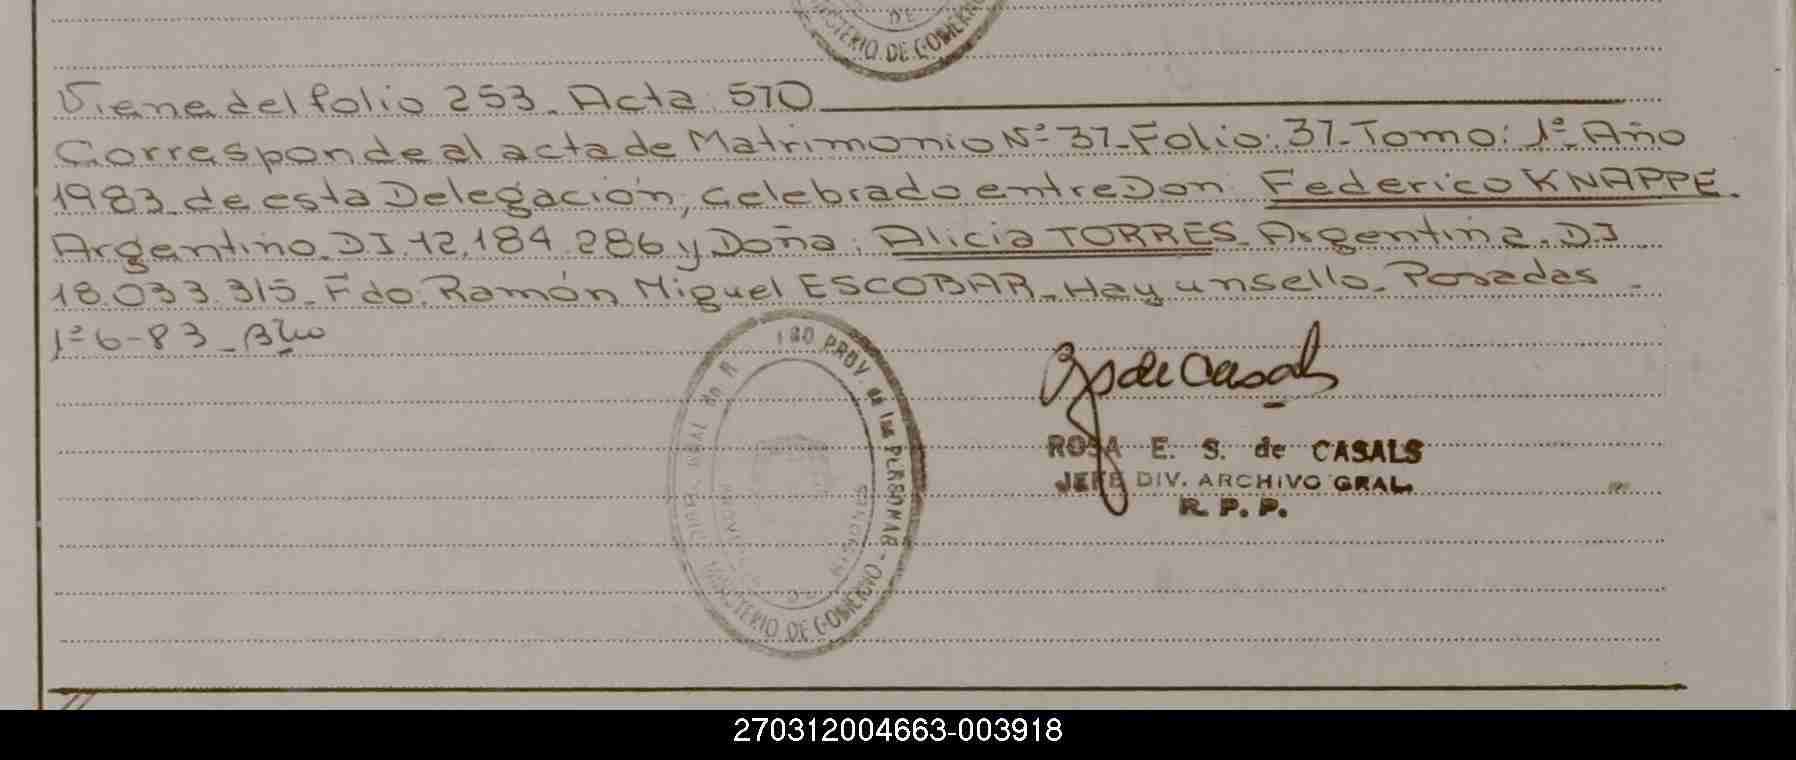 DE
MINISTERIO DE GOBIERNO
Viene del folio 253. Acta 570
Corresponde al acta de Matrimonio Nº 37-Folio: 37-Tomo: 1º-Año
1983 de esta Delegación, celebrado entre Don: Federico KNAPPE.
Argentino. DI. 12.184.286 y Doña: Alicia TORRES. Argentina. DI
18.033.315. Fdo. Ramón Miguel ESCOBAR. Hay un sello. Posadas
1º-6-83
PROV. de las PERSONAS - MINISTERIO DE GOBIERNO
MISIONES
de Casals
ROSA E. S. de CASALS
JEFE DIV. ARCHIVO GRAL.
R. P. P.
270312004663-003918